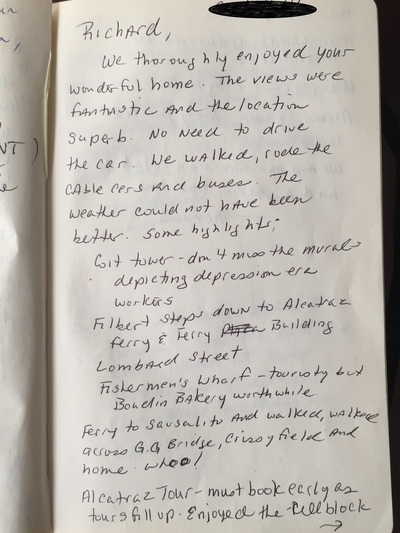 NT)
Richard,
We thoroughly enjoyed your
wonderful home. The views were
fantastic and the location
superb. No need to drive
the car. We walked, rode the
cable cars and buses. The
weather could not have been
better. Some highlights;
Coit tower - don't miss the murals
depicting depression era
workers
Filbert Steps down to Alcatraz
ferry & Ferry Building
Lombard Street
Fishermen's Wharf - touristy but
Boudin Bakery worthwhile
Ferry to Sausalito and walked, walked
across G.G Bridge, Crissy field and
home. whoo!
Alcatraz Tour - must book early as
tours fill up. Enjoyed the cellblock
→